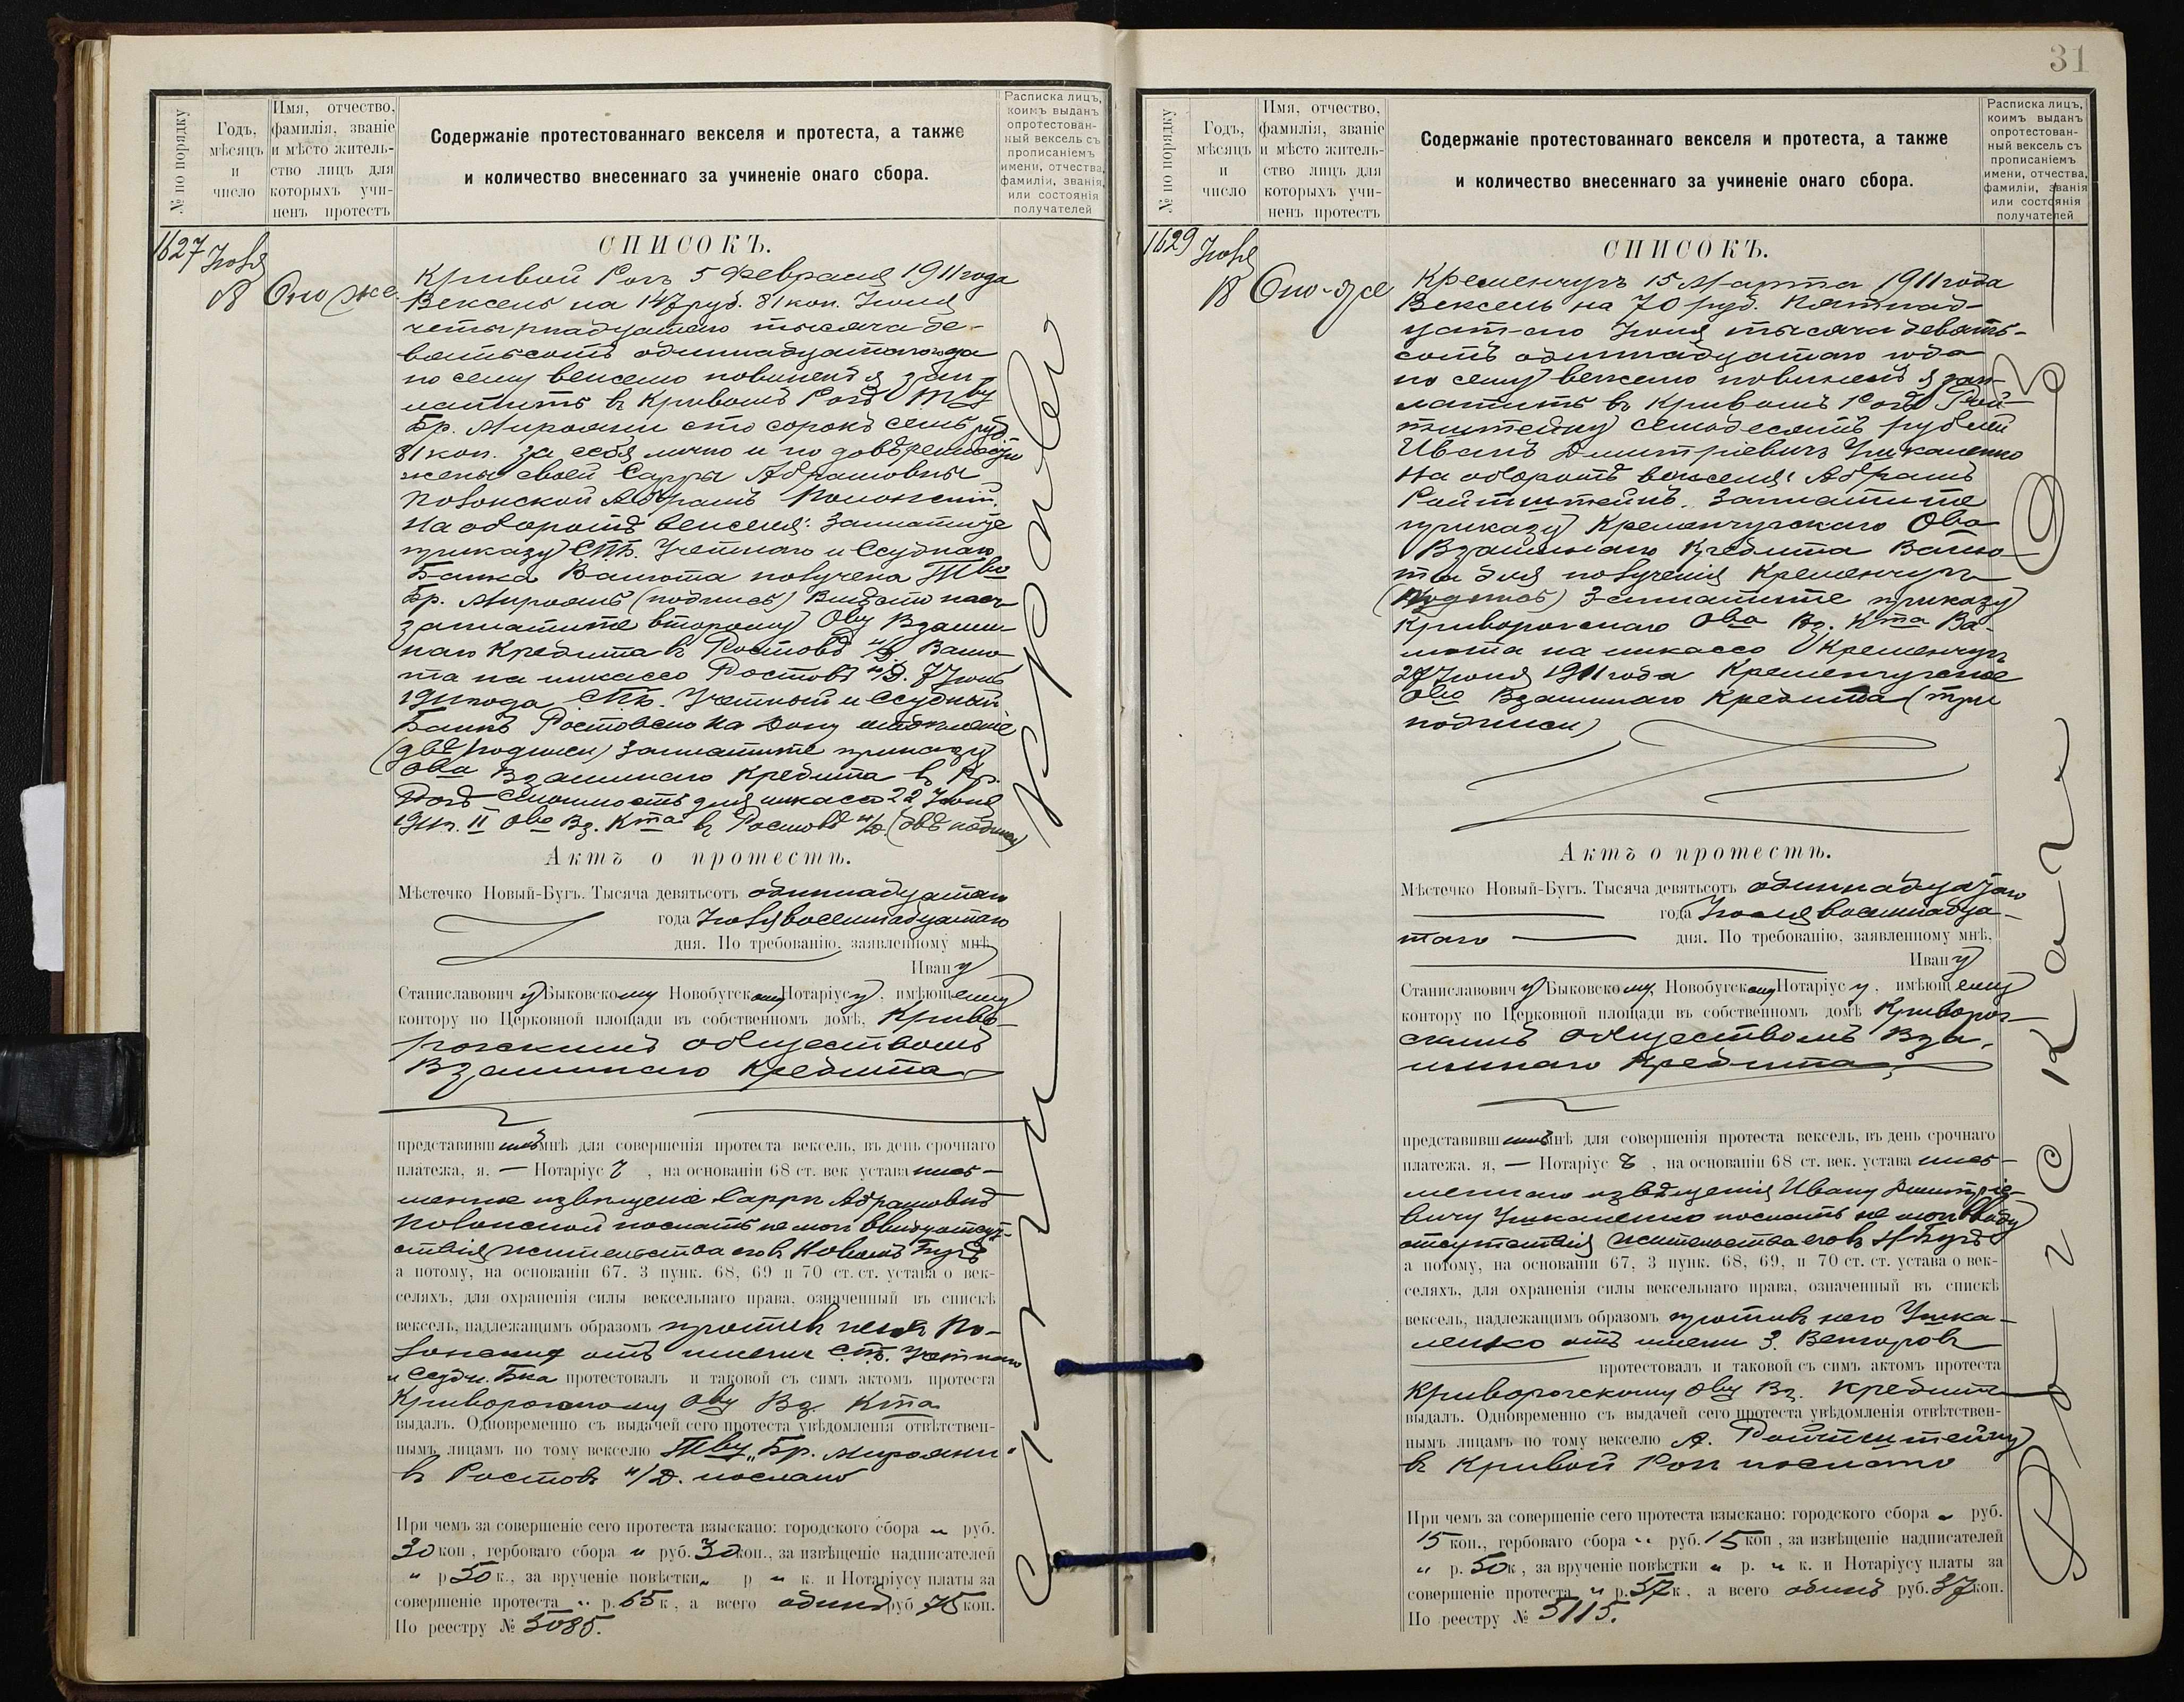 № по порядку
Годъ, мѣсяцъ и число
Имя, отчество, фамилія, званіе и мѣсто жительство лицъ для которыхъ учиненъ протестъ
Содержаніе протестованнаго векселя и протеста, а также
и количество внесеннаго за учиненіе онаго сбора.
Расписка лицъ, коимъ выданъ опротестованный вексель съ прописаніемъ имени, отчества, фамиліи, званія, или состоянія получателей
1627 Іюля
18 Оно же
СПИСОКЪ.
Кривой Рогъ 5 Февраля 1911 года
Вексель на 147 руб. 81 коп. Іюля
четырнадцатаго тысяча де-
вятьсотъ одиннадцатаго года
по сему векселю повиненъ я зап-
латить въ Кривомъ Рогѣ Тву
Бр. Мирояни сто сорокъ семь руб.
81 коп. за себя лично и по довѣренности
жены своей Сарры Абрамовны
Полонской Абрамъ Полонскій.
На оборотѣ векселя: Заплатите
приказу СПБ. Учетнаго и Ссуднаго
Банка Валюта получена Тво
Бр. Мироянъ (подпись) Вмѣсто насъ
заплатите второму Ову Взаим-
наго Кредита въ Ростовѣ н/Д Валю-
та на инкассо Ростовъ н/Д. 7 Іюня
1911 года СПБ. Учетный и Ссудный
Банкъ Ростовское на Дону отдѣленіе
(двѣ подписи) Заплатите приказу
Ова Взаимнаго Кредита въ Кр.
Рогѣ Стоимость для инкассо 22 Іюня
1911 г. II Ово Вз. Кта въ Ростовѣ н/Д. (двѣ подписи)
Актъ о протестѣ.
Мѣстечко Новый-Бугъ. Тысяча девятьсотъ одиннадцатаго
года Іюля восемнадцатаго
дня. По требованію, заявленному мнѣ,
Ивану
Станиславовичу Быковскому Новобугскому Нотаріусу, имѣющему
контору по Церковной площади въ собственномъ домѣ, Криво-
рожскимъ обществомъ
Взаимнаго Кредита
представившимъ мнѣ для совершенія протеста вексель, въ день срочнаго
платежа, я, — Нотаріусъ, на основаніи 68 ст. век устава пись-
менное извѣщеніе Саррѣ Абрамовнѣ
Полонской послать не могъ ввиду отсут-
ствія жительства его въ Новомъ Бугѣ
а потому, на основаніи 67, 3 пунк. 68, 69 и 70 ст. ст. устава о век-
селяхъ, для охраненія силы вексельнаго права, означенный въ спискѣ
вексель, надлежащимъ образомъ противъ нея По-
лонскія отъ имени СПБ. Учетнаго
и Ссудн. Бка протестовалъ и таковой съ симъ актомъ протеста
Криворожскому Ову Вз. Кта
выдалъ. Одновременно съ выдачей сего протеста увѣдомленія отвѣтствен-
нымъ лицамъ по тому векселю Тву „Бр. Мирояни"
въ Ростовъ н/Д. послано
При чемъ за совершеніе сего протеста взыскано: городского сбора " руб.
30 коп, гербоваго сбора " руб. 30 коп., за извѣщеніе надписателей
" р 50 к., за врученіе повѣстки " р " к. и Нотаріусу платы за
совершеніе протеста " р. 65 к, а всего одинъ руб 75 коп.
По реестру № 5085.
31
№ по порядку
Годъ, мѣсяцъ и число
Имя, отчество, фамилія, званіе и мѣсто жительство лицъ для которыхъ учиненъ протестъ
Содержаніе протестованнаго векселя и протеста, а также
и количество внесеннаго за учиненіе онаго сбора.
Расписка лицъ, коимъ выданъ опротестованный вексель съ прописаніемъ имени, отчества, фамиліи, званія или состоянія получателей
1629 Іюля
18 Оно-же
СПИСОКЪ.
Кременчугъ 15 Марта 1911 года
Вексель на 70 руб. Пятнад-
цатаго Іюля тысяча девять-
сотъ одиннадцатаго года
по сему векселю повиненъ я зап-
латить въ Кривомъ Рогѣ Рой-
тштейну семьдесятъ рублей
Иванъ Дмитріевичъ Чикаленко
На оборотѣ векселя: Абрамъ
Ройтштейнъ. Заплатите
приказу Кременчугскаго Ова
Взаимнаго Кредита Валю-
та для полученія Кременчугъ
(подпись) Заплатите приказу
Криворожскаго Ова Вз. Кта Ва-
люта на инкассо Кременчугъ
27 Іюня 1911 года Кременчугское
Ово Взаимнаго Кредита (три
подписи)
Актъ о протестѣ.
Мѣстечко Новый-Бугъ. Тысяча девятьсотъ одиннадцатаго
года Іюля восемнадца-
таго — дня. По требованію, заявленному мнѣ,
Ивану
Станиславовичу Быковскому, Новобугскому Нотаріусу, имѣющему
контору по Церковной площади въ собственномъ домѣ Криворож-
скимъ Обществомъ Вза-
имнаго Кредита,
представившимъ мнѣ для совершенія протеста вексель, въ день срочнаго
платежа. я, — Нотаріусъ, на основаніи 68 ст. век. устава пись-
меннаго извѣщенія Ивану Дмитріе-
вичу Чикаленко послать не могъ ввиду
отсутствія жительства его въ Н Бугѣ
а потому, на основаніи 67, 3 пунк. 68, 69, и 70 ст. ст. устава о век-
селяхъ, для охраненія силы вексельнаго права, означенный въ спискѣ
вексель, надлежащимъ образомъ противъ него Чика-
ленко отъ имени З.
протестовалъ и таковой съ симъ актомъ протеста
Криворожскому Ову Вз. Кредита
выдалъ. Одновременно съ выдачей сего протеста увѣдомленія отвѣтствен-
нымъ лицамъ по тому векселю А. Ройтштейну
въ Кривой Рогъ послано
При чемъ за совершеніе сего протеста взыскано: городского сбора " руб.
15 коп., гербоваго сбора " руб. 15 коп, за извѣщеніе надписателей
" р. 50 к, за врученіе повѣстки " р. " к. и Нотаріусу платы за
совершеніе протеста " р. 57 к, а всего одинъ руб. 37 коп.
По реестру № 5115.